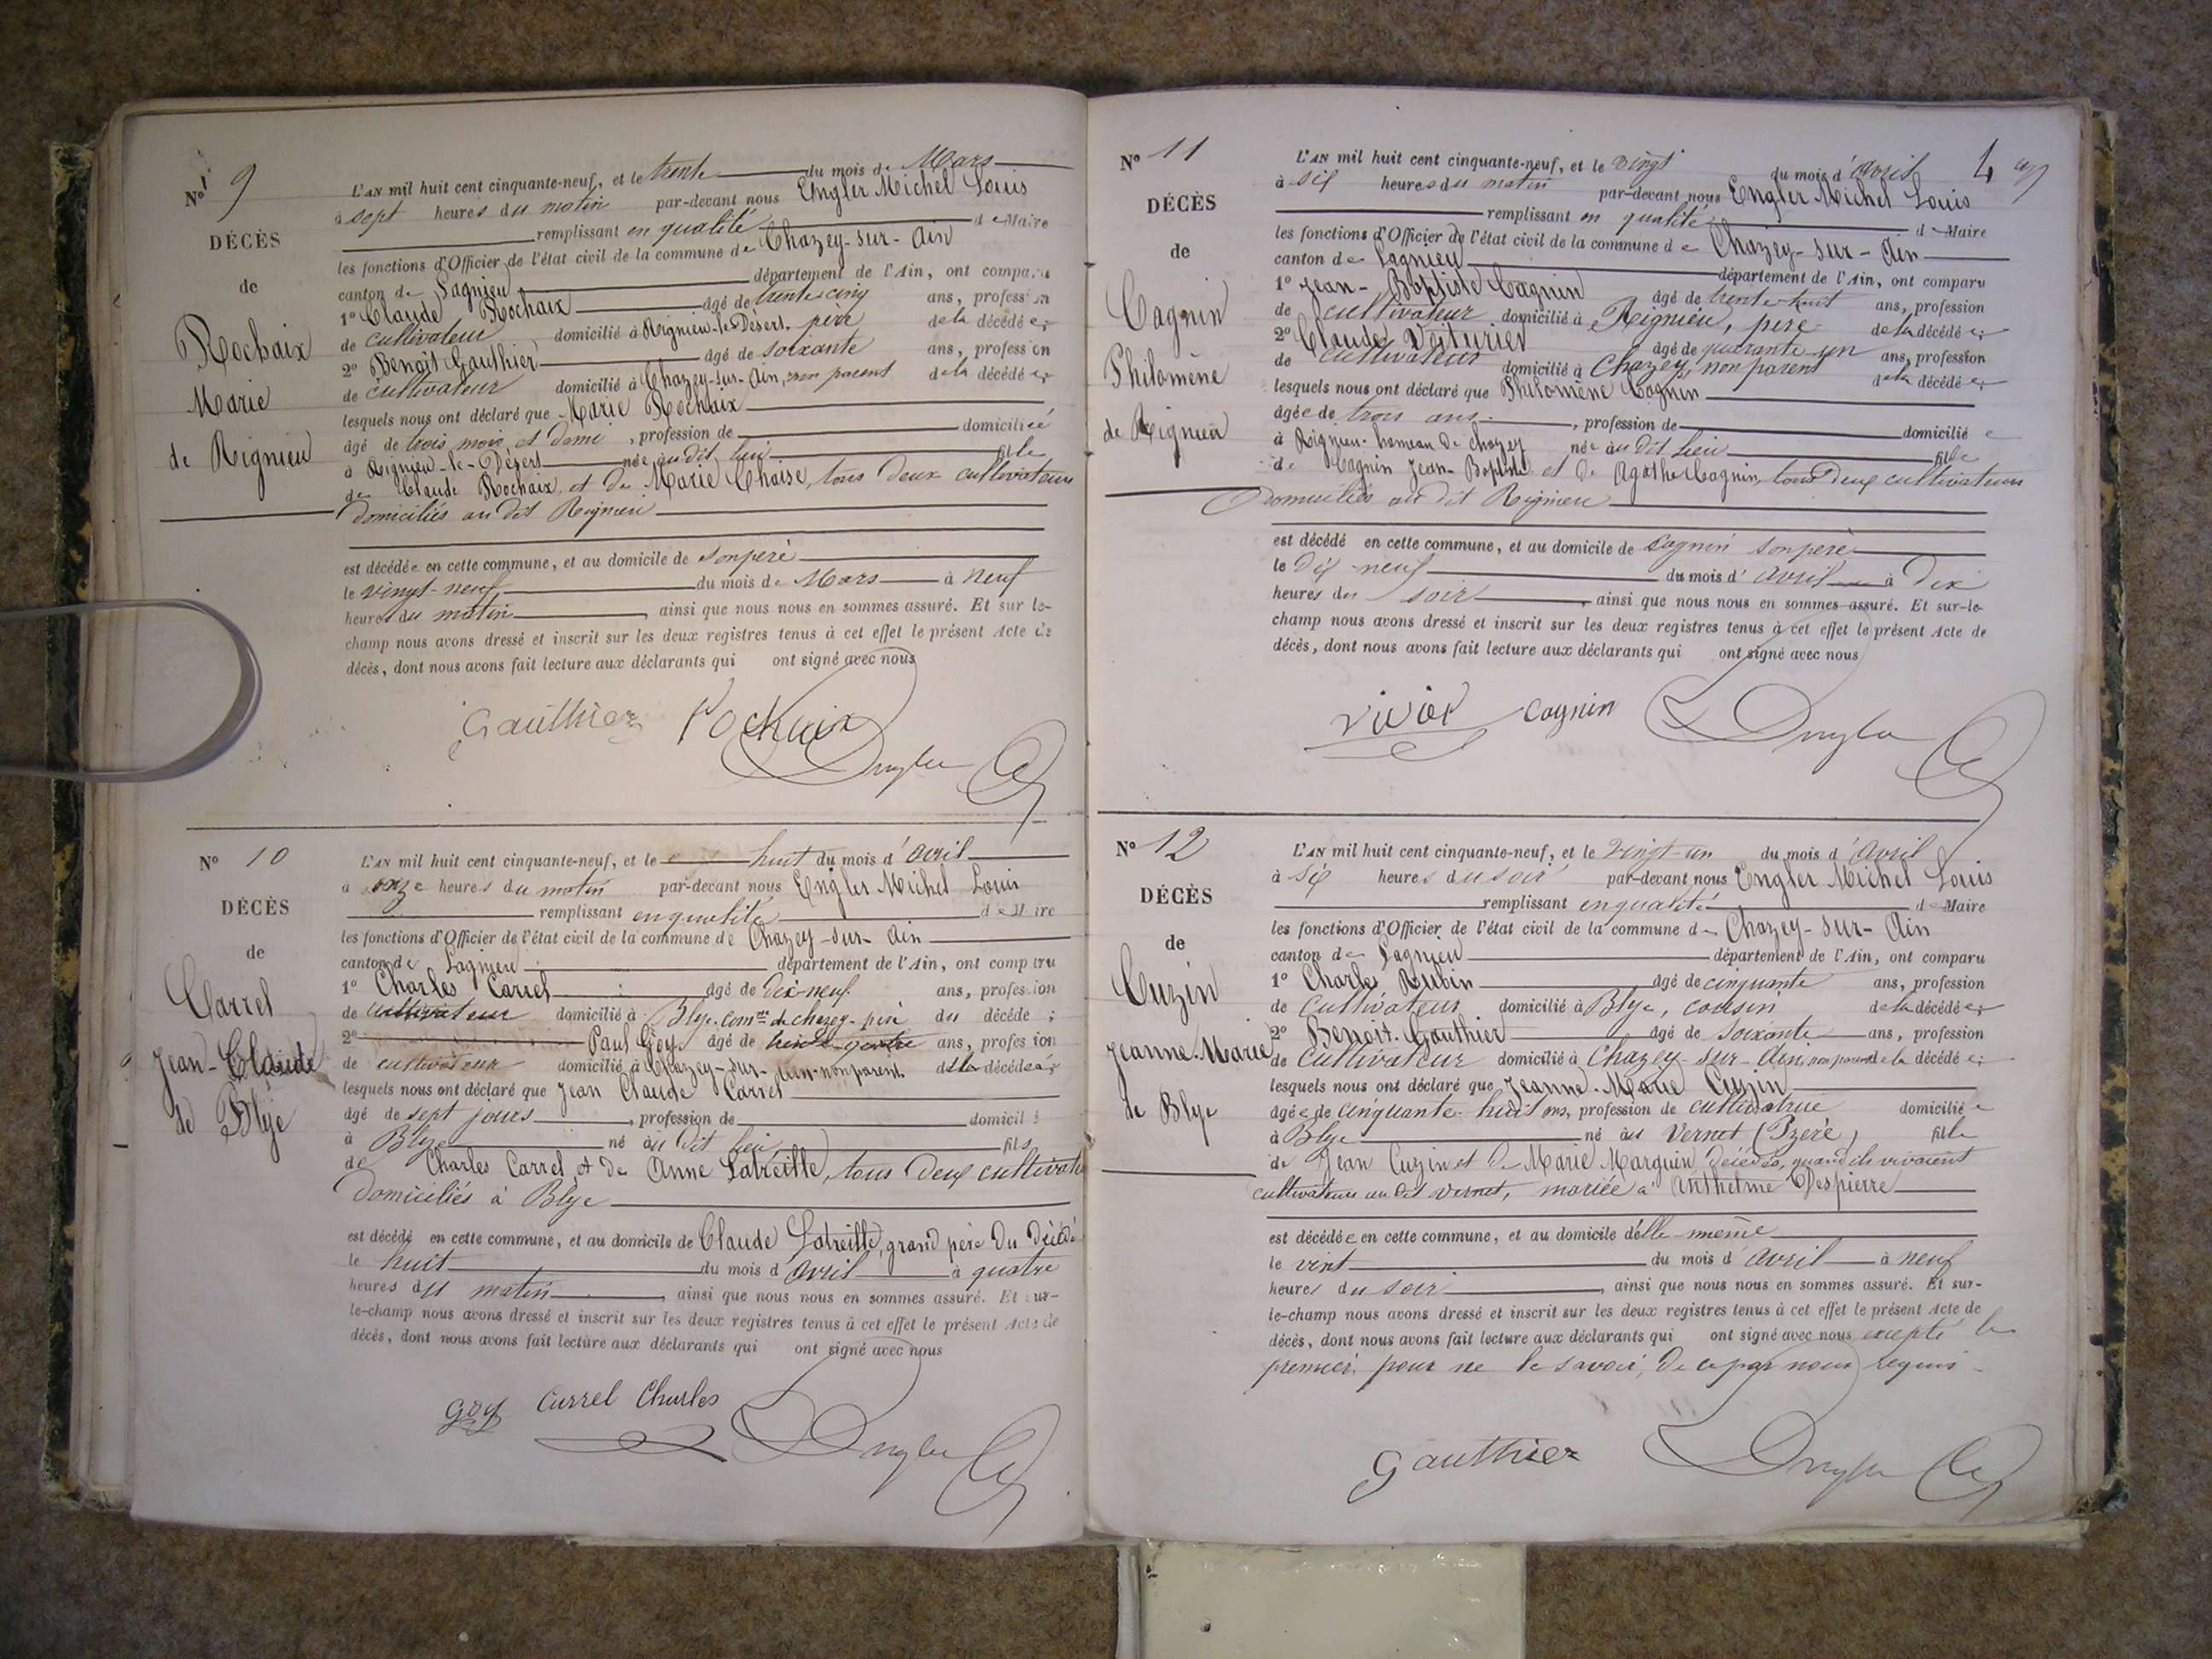 N° 9
DÉCÈS
de
Rochaix
Marie
de Rignieu
L'AN mil huit cent cinquante-neuf, et le trente du mois de Mars
à sept heures du matin par-devant nous Engler Michel Louis
remplissant en qualité de Maire
les fonctions d'Officier de l'état civil de la commune de Chazey-sur-Ain
canton de Lagnieu département de l'Ain, ont comparu
1° Claude Rochaix âgé de trente cinq ans, profession
de cultivateur domicilié à Rignieu-le-Désert, père de la décédée;
2° Benoît Gauthier âgé de soixante ans, profession
de cultivateur domicilié à Chazey-sur-Ain, non parent de la décédée;
lesquels nous ont déclaré que Marie Rochaix
âgé de trois mois et demi, profession de domiciliée
à Rignieu-le-Désert née au dit lieu fille
de Claude Rochaix, et de Marie Chaise, tous deux cultivateurs
domiciliés au dit Rignieu
est décédée en cette commune, et au domicile de son père
le vingt-neuf du mois de Mars à neuf
heures du matin, ainsi que nous nous en sommes assuré. Et sur le-
champ nous avons dressé et inscrit sur les deux registres tenus à cet effet le présent Acte de
décès, dont nous avons fait lecture aux déclarants qui ont signé avec nous
Gauthier Rochaix Engler
N° 10
DÉCÈS
de
Carrel
Jean-Claude
de Blye
L'AN mil huit cent cinquante-neuf, et le huit du mois d'avril
à onze heures du matin par-devant nous Engler Michel Louis
remplissant en qualité de Maire
les fonctions d'Officier de l'état civil de la commune de Chazey-sur-Ain
canton de Lagnieu département de l'Ain, ont comparu
1° Charles Carrel âgé de dix-neuf ans, profession
de cultivateur domicilié à Blye, com.ne de chazey-père du décédé;
2° Paul Goy âgé de trente-quatre ans, profession
de cultivateur domicilié à Chazey-sur-Ain-non parent de la décédée;
lesquels nous ont déclaré que Jean Claude Carrel
âgé de sept jours, profession de domicilié
à Blye né au dit lieu fils
de Charles Carrel et de Anne Latreille, tous deux cultivate
domiciliés à Blye
est décédé en cette commune, et au domicile de Claude Latreille, grand père du décédé
le huit du mois d'avril à quatre
heures du matin, ainsi que nous nous en sommes assuré. Et sur-
le-champ nous avons dressé et inscrit sur les deux registres tenus à cet effet le présent Acte de
décès, dont nous avons fait lecture aux déclarants qui ont signé avec nous
goy Carrel Charles Engler
4
N° 11
DÉCÈS
de
Cagnin
Philomène
de Rignieu
L'AN mil huit cent cinquante-neuf, et le vingt du mois d'avril
à six heures du matin par-devant nous Engler Michel Louis
remplissant en qualité de Maire
les fonctions d'Officier de l'état civil de la commune de Chazey-sur-Ain
canton de Lagnieu département de l'Ain, ont comparu
1° Jean-Baptiste Cagnin âgé de trente-huit ans, profession
de cultivateur domicilié à Rignieu, père de la décédée;
2° Claude Voiturier âgé de quarante-un ans, profession
de cultivateur domicilié à Chazey, non parent de la décédée;
lesquels nous ont déclaré que Philomène Cagnin
âgée de trois ans, profession de domiciliée
à Rignieu-hameau de chazey née au dit lieu fille
de Cagnin Jean-Baptiste et de Agathe Cagnin, tous deux cultivateurs
domiciliés au dit Rignieu
est décédé en cette commune, et au domicile de Cagnin son père
le dix neuf du mois d'avril à dix
heures du soir, ainsi que nous nous en sommes assuré. Et sur-le-
champ nous avons dressé et inscrit sur les deux registres tenus à cet effet le présent Acte de
décès, dont nous avons fait lecture aux déclarants qui ont signé avec nous
Cagnin Engler
N° 12
DÉCÈS
de
Cuzin
Jeanne-Marie
de Blye
L'AN mil huit cent cinquante-neuf, et le vingt-un du mois d'avril
à six heures du soir par-devant nous Engler Michel Louis
remplissant en qualité de Maire
les fonctions d'Officier de l'état civil de la commune de Chazey-sur-Ain
canton de Lagnieu département de l'Ain, ont comparu
1° Charles Rubin âgé de cinquante ans, profession
de cultivateur domicilié à Blye, cousin de la décédée;
2° Benoît Gauthier âgé de soixante ans, profession
de cultivateur domicilié à Chazey-sur-Ain, non parent de la décédée;
lesquels nous ont déclaré que Jeanne-Marie Cuzin
âgée de cinquante-huit ans, profession de cultivatrice domiciliée
à Blye né au Vernet (Izère) fille
de Jean Cuzin et de Marie Marguin décédés, quand ils vivaient
cultivateurs au dit Vernet, mariée à Anthelme Despierre
est décédée en cette commune, et au domicile d'elle-même
le vint du mois d'avril à neuf
heures du soir, ainsi que nous nous en sommes assuré. Et sur-
le-champ nous avons dressé et inscrit sur les deux registres tenus à cet effet le présent Acte de
décès, dont nous avons fait lecture aux déclarants qui ont signé avec nous excepté le
premier pour ne le savoir, de ce par nous requis
Gauthier Engler